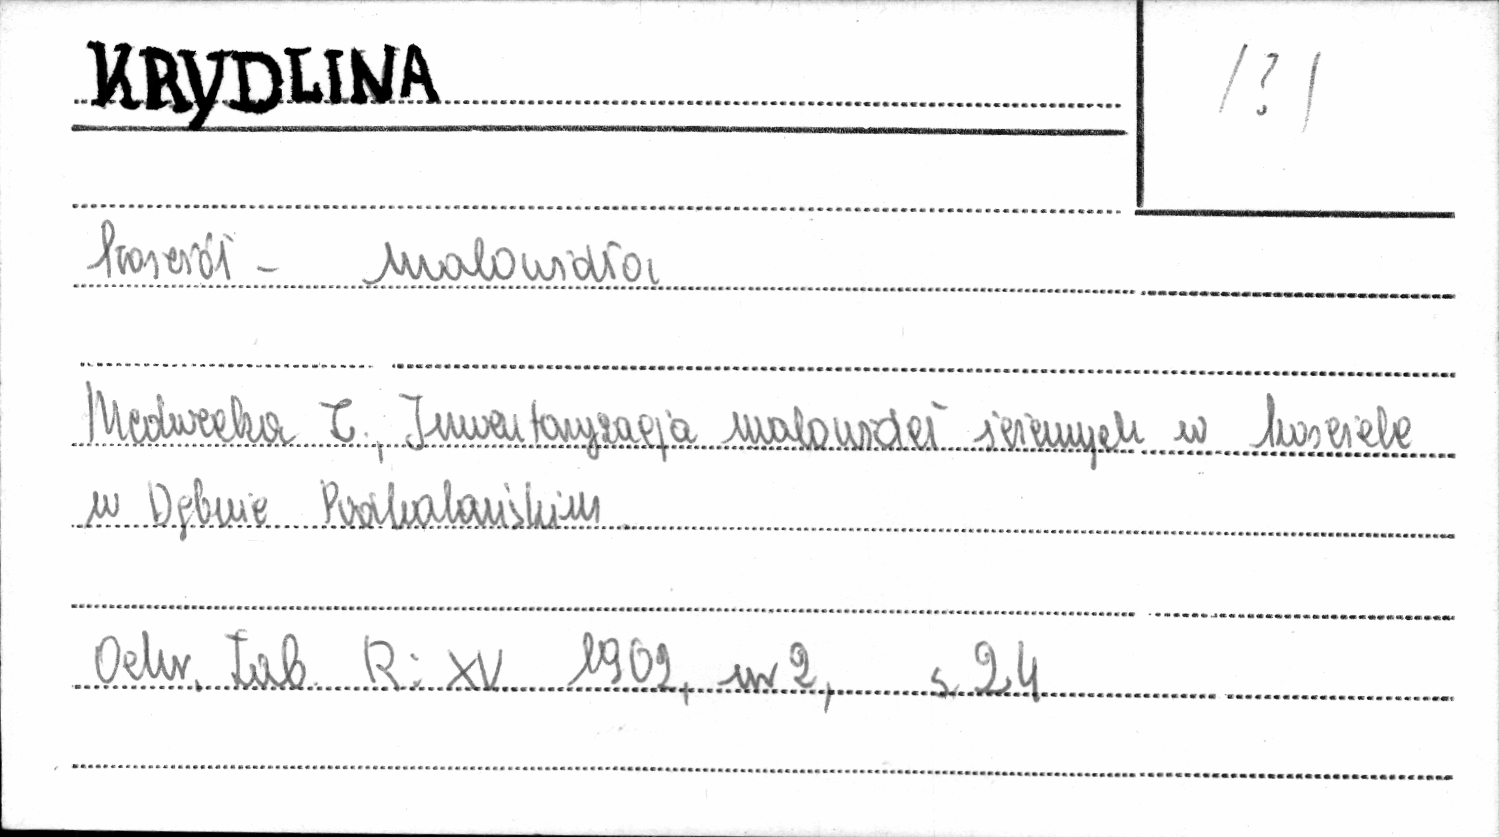 KRYDLINA
/?/
kościół - malowidła
Medwecka Z., Inwentaryzacja malowideł ściennych w kościele
w Dębnie Podhalańskim.
Ochr. Zab. R: XV 1962, nr 2, s 24